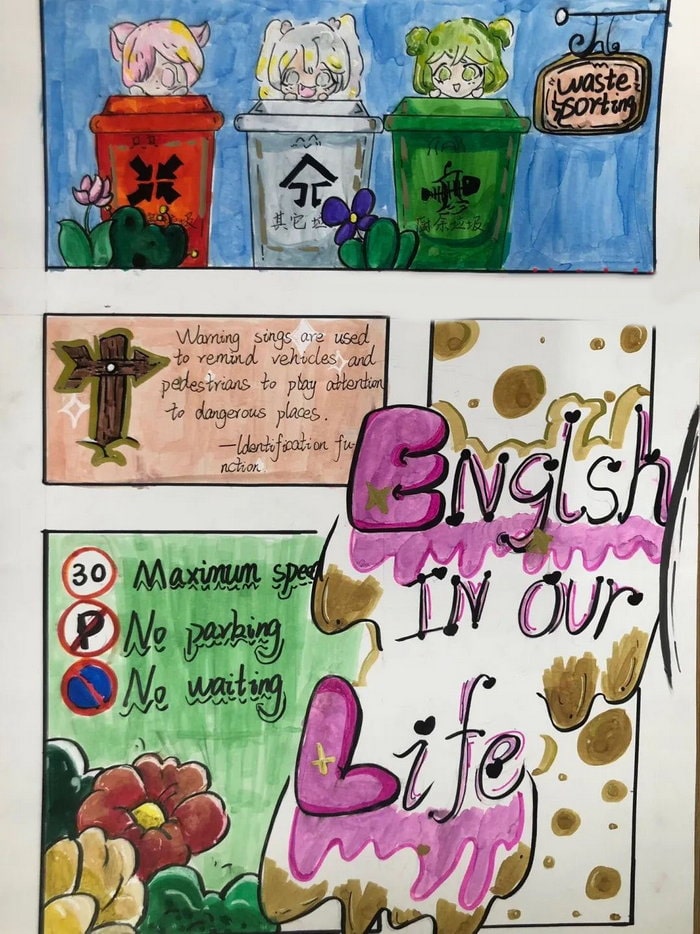 Waste
Sorting
其它垃
厨余垃圾
Warning sings are used
to remind vehicles and
pedestrians to play attention
to dangerous places.
—Identification fu-
nction
Englsh
IN Our
Life
30 Maximum speed
P No parking
No waiting